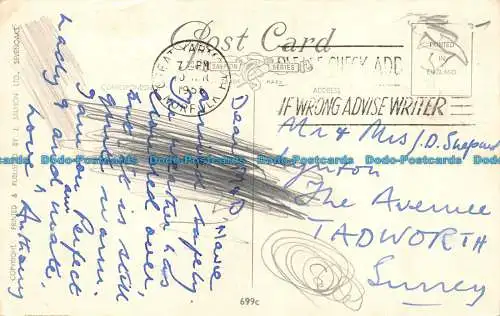 Post Card
GREAT YARMOUTH
7 PM
1956
NORFOLK
SALMON SERIES
PLEASE CHECK ADD
ADDRESS
IF WRONG ADVISE WRITER
PRINTED
IN
ENGLAND
Dear M & D
Have
arrived safely.
The weather has
clouded over,
but it is still
quite warm.
I am on Perfect
Lady & and mate.
Love
Anthony
Mr & Mrs J.D. Shepard
The Avenue
TADWORTH
Surrey
COPYRIGHT. PRINTED & PUBLISHED BY J. SALMON LTD., SEVENOAKS
699c
Dodo-Postcards
Dodo-Postcards
Dodo-Postcards
Dodo-Postcards
Dodo-Postcards